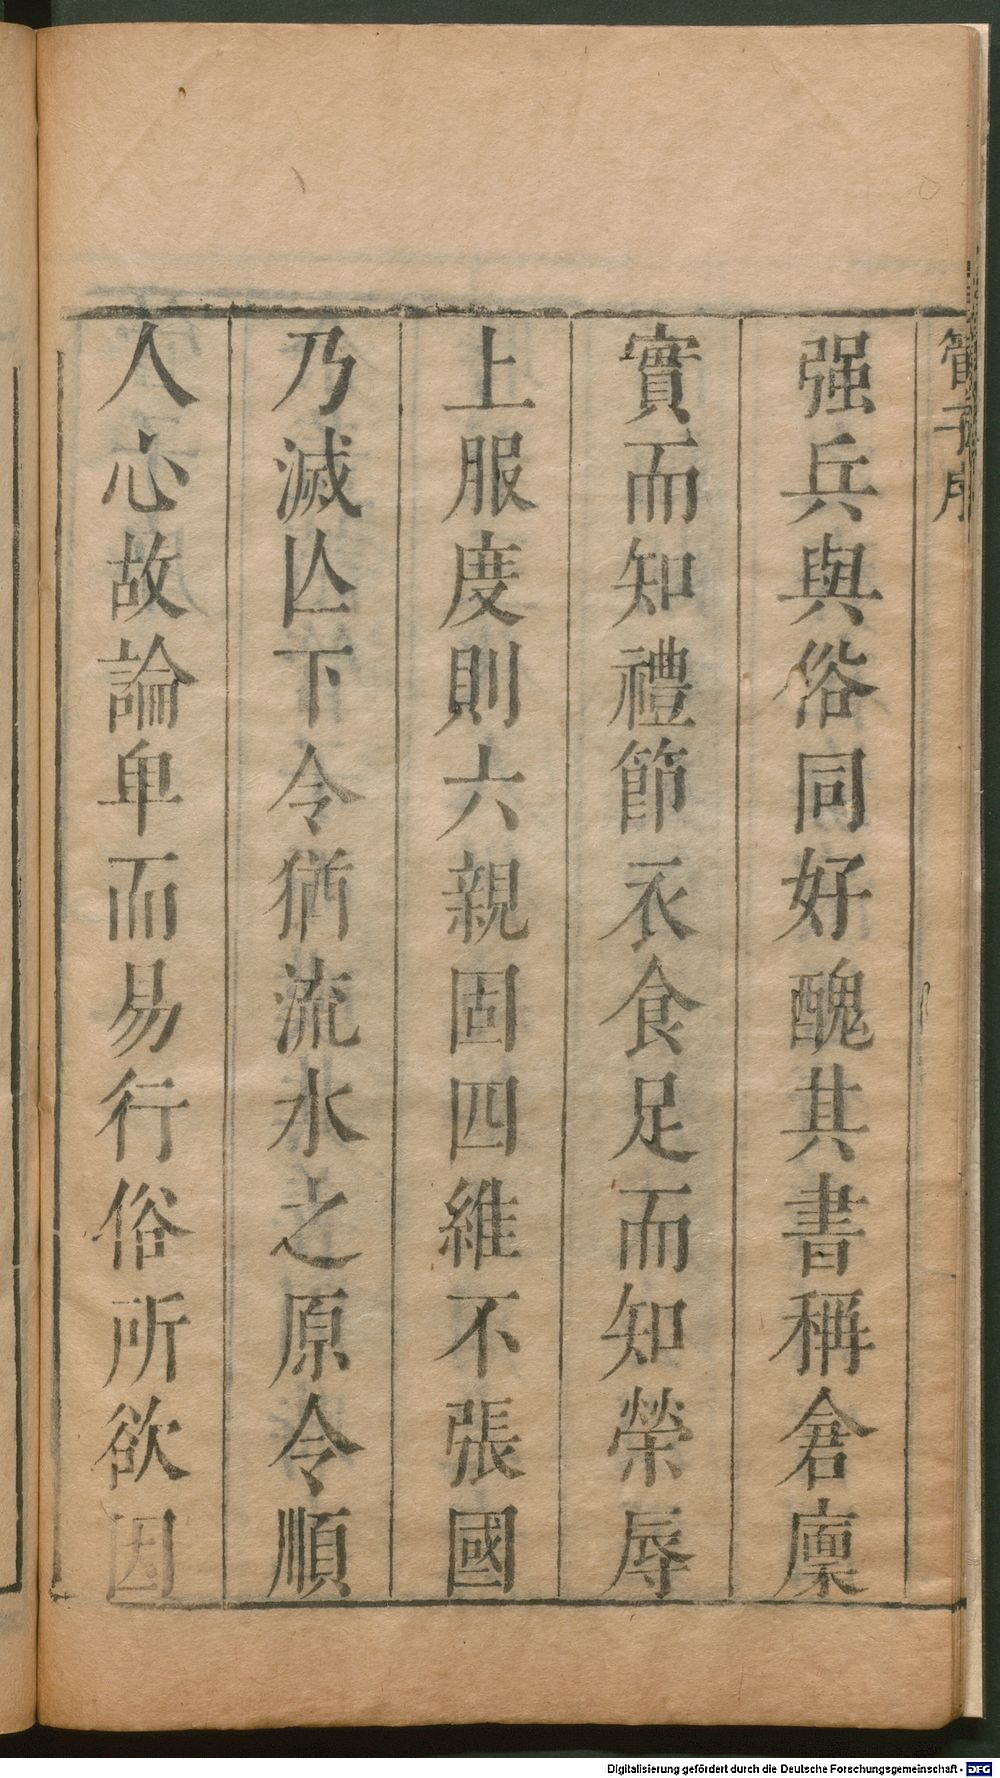 管子序
强兵與俗同好醜其書稱倉廩
實而知禮節衣食足而知榮辱
上服度則六親固四維不張國
乃滅亾下令猶流水之原令順
人心故論卑而易行俗所欲因
Digitalisierung gefördert durch die Deutsche Forschungsgemeinschaft - DFG